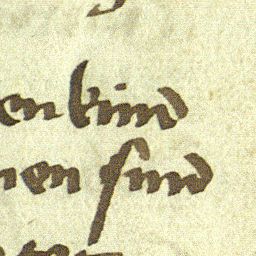 en kind
nen sind